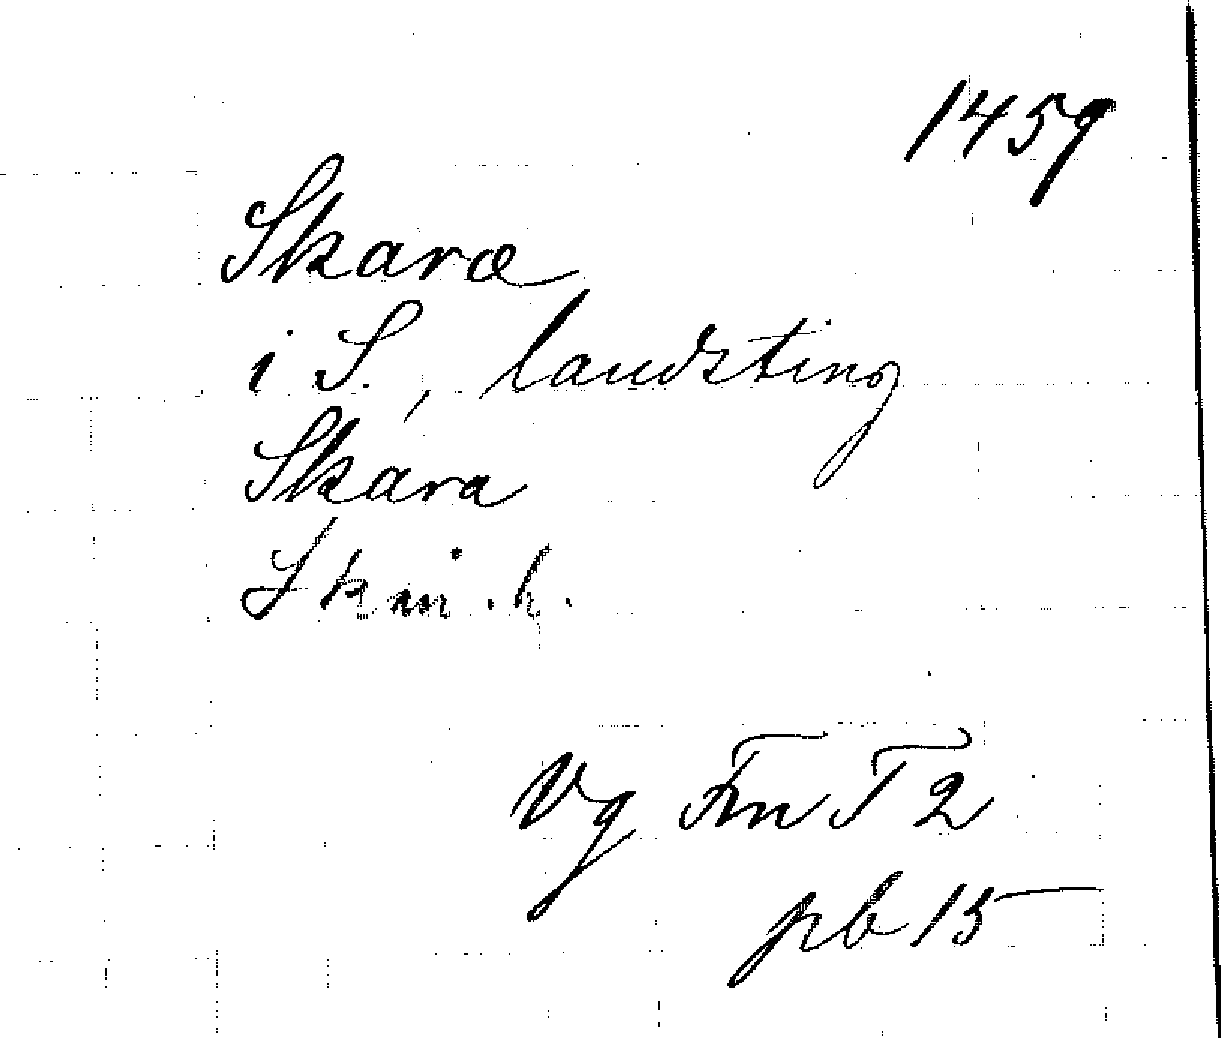 1459
Skaræ
i S., landzting
Skara
h.
Vg Fm T 2
pb 15